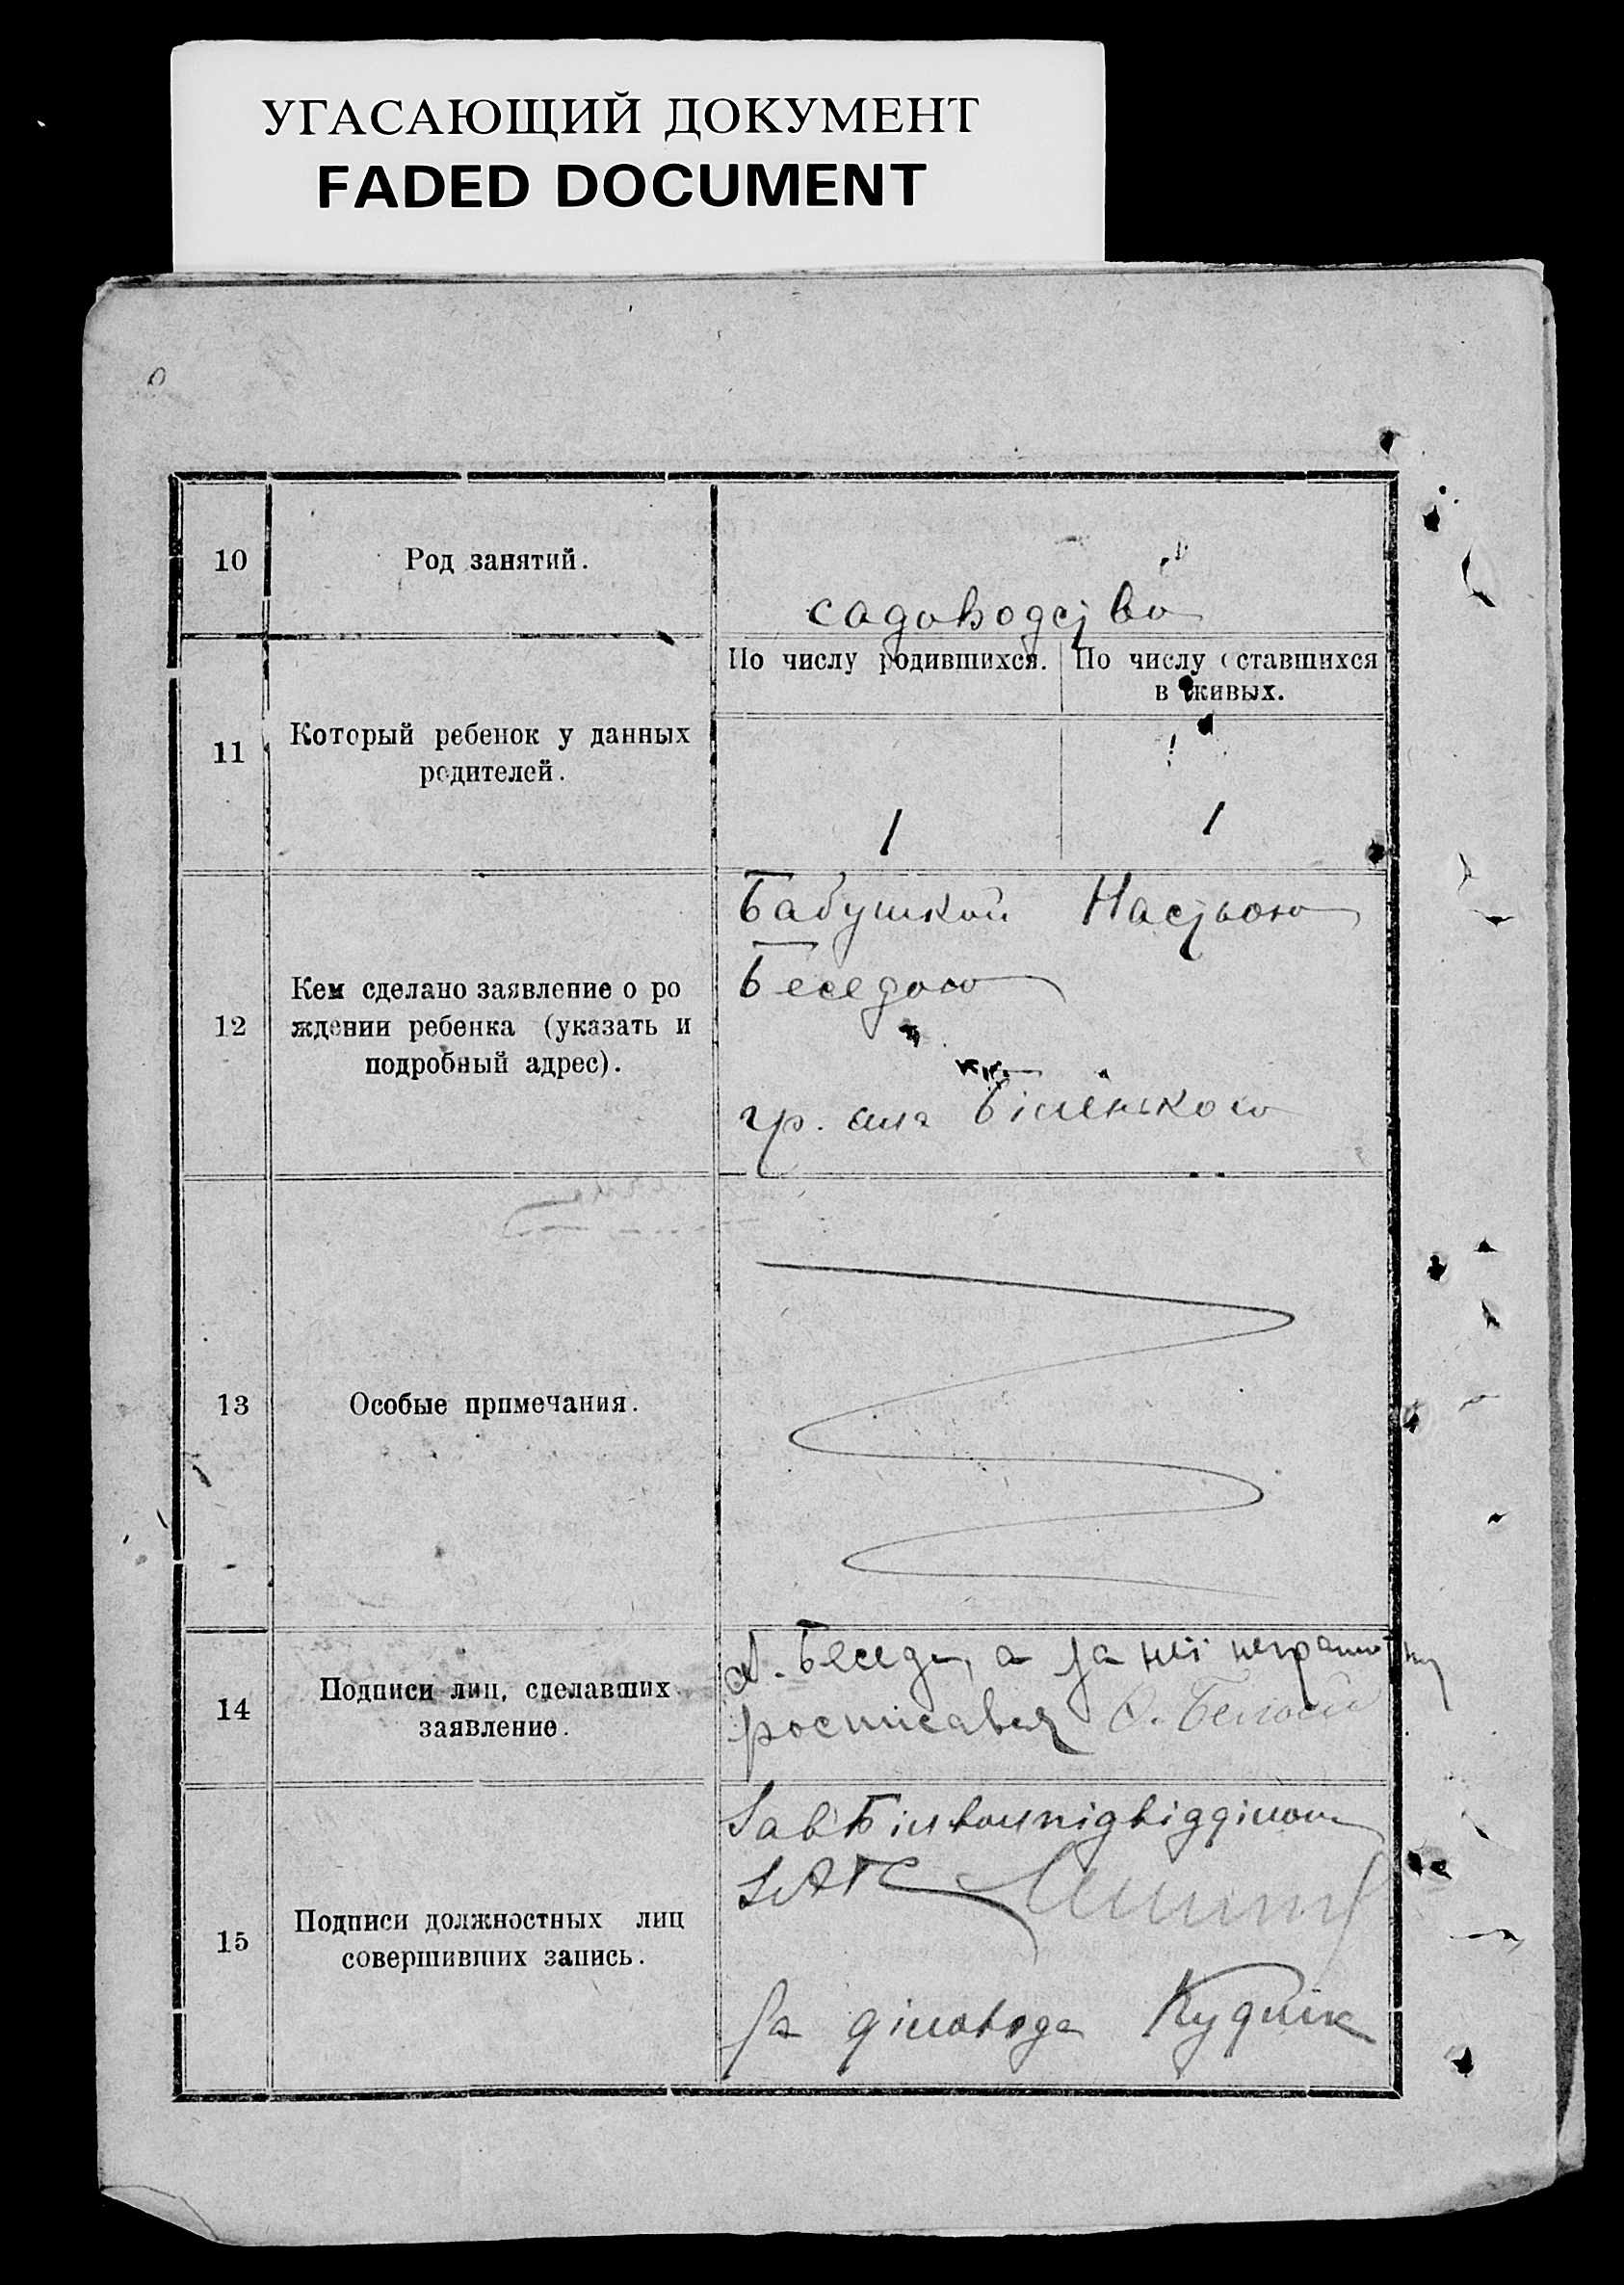 УГАСАЮЩИЙ ДОКУМЕНТ
FADED DOCUMENT
10
Род занятий.
садоводство
11
Который ребенок у данных
родителей.
По числу родившихся.
По числу оставшихся
в живых.
1
1
12
Кем сделано заявление о ро
ждении ребенка (указать и
подробный адрес).
Бабушкой Настьою
Беседою
гр. села
13
Особые примечания.
14
Подписи лиц, сделавших
заявление.
Беседа, а за неї неграмотну
росписався О.
15
Подписи должностных лиц
совершивших запись.
Зав
ЗАГС
За діловода Кудик